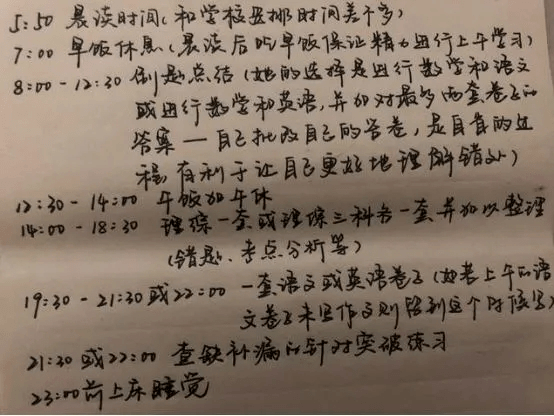 5:50 晨读时间(和学校安排时间差不多)
7:00 早饭休息(晨读后吃早饭保证精力进行上午学习)
8:00-12:30 刷题总结(她的选择是进行数学和语文
或进行数学和英语,并加对最多两套卷子的
答案一自己批改自己的答卷,是自省的过
程,有利于让自己更好地理解错处)
12:30-14:00 午饭加午休
14:00-18:30 理综一套或理综三科各一套并加以整理
(错题、考点分析等)
19:30-21:30或22:00 一套语文或英语卷子(如若上午的语
文卷子未写作文则留到这个时候写)
21:30或22:00 查缺补漏的针对突破练习
23:00前上床睡觉